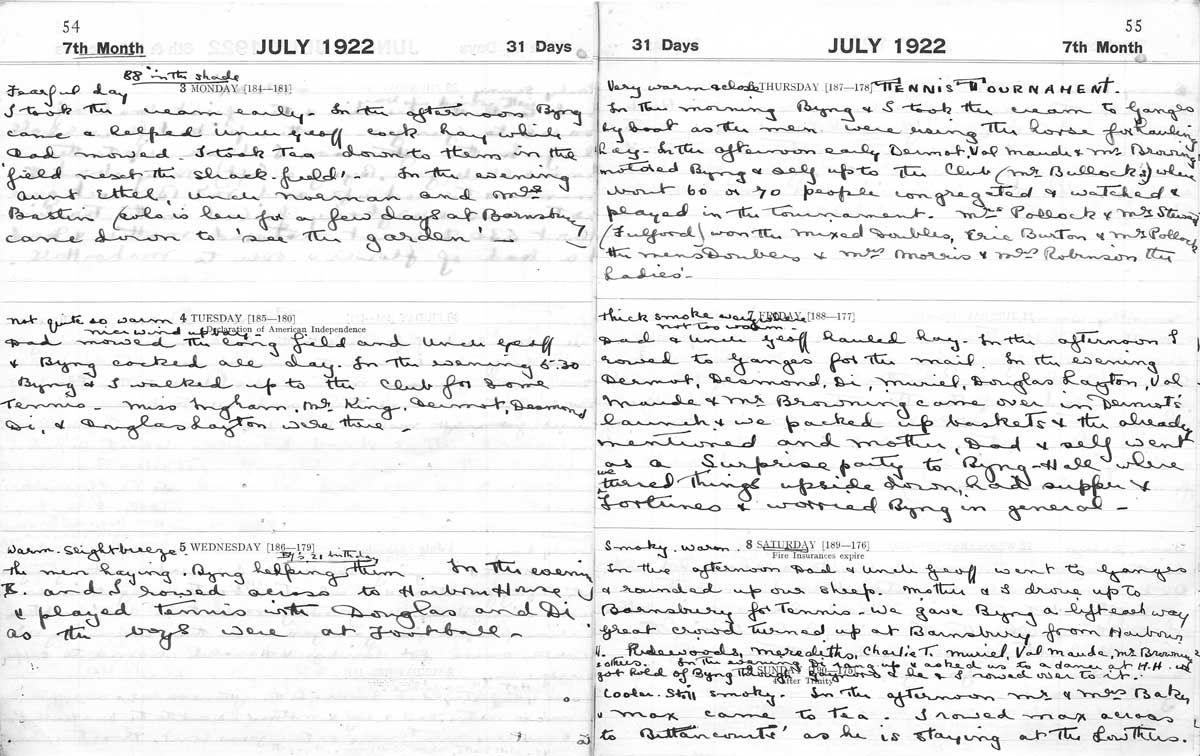 54
7th Month JULY 1922 31 Days
88° in the shade
Fearful day 3 MONDAY [184—181]
I took the cream early. In the afternoon Byng
came & helped Uncle Geoff cock hay while
Dad mowed. I took Tea down to them in the
field next the 'shack-field'. In the evening
Aunt Ethel, Uncle Norman and Mrs
Bastin (who is here for a few days at Barnsbury)
came down to 'see the garden' —
not quite so warm 4 TUESDAY [185—180]
nice wind up bay — Declaration of American Independence
Dad mowed the long field and Uncle Geoff
& Byng cocked all day. In the evening 5.30
Byng & I walked up to the Club for some
Tennis — Miss Ingham, Mr King, Dermot, Desmond
Di, & Douglas Layton were there —
Warm. Sleight breeze. 5 WEDNESDAY [186—179]
By's 21 birthday
The men haying, Byng helping them. In the evening
B. and I rowed across to Harbour House
& played tennis with Douglas and Di
as the boys were at Football —
55
31 Days JULY 1922 7th Month
Very warm & close THURSDAY [187—178] TENNIS TOURNAMENT.
In the morning Byng & I took the cream to Ganges
by boat as the men were using the horse for hauling
hay. In the afternoon early Dermot, Val Maude & Mr Browning
motored Byng & self up to the Club (Mr Bullock's) where
about 60 or 70 people congregated & watched &
played in the Tournament. Mrs Pollock & Mr
(Fulford) won the mixed Doubles, Eric Burton & Mr Pollock
the mens Doubles & Mrs Morris & Mrs Robinson the
Ladies' —
Thick smoke 7 FRIDAY [188—177]
not too warm —
Dad & Uncle Geoff hauled hay. In the afternoon I
rowed to Ganges for the mail. In the evening
Dermot, Desmond, Di, Muriel, Douglas Layton, Val
Maude & Mr Browning came over in Dermot's
launch & we packed up baskets & the already
mentioned and Mother, Dad & self went
as a Surprise party to Byng-Hall where
we turned Things upside down, had supper &
Fortunes & worried Byng in general —
Smoky. warm. 8 SATURDAY [189—176]
Fire Insurances expire
In the afternoon Dad & Uncle Geoff went to Ganges
& rounded up our sheep. Mother & I drove up to
Barnsbury for Tennis — We gave Byng a lift each way
great crowd turned up at Barnsbury from Harbour
H. Meredith's, Charlie T. Muriel, Val Maude, Mr Browning
& others. In the evening Di rang up & asked us to a dance at H.H. we
got hold of Byng through & he & I rowed over to it.
SUNDAY [190—175]
4 After Trinity
Cooler. Still smoky. In the afternoon Mr & Mrs Baker
& Max came to tea. I rowed Max across
to Bittancourts' as he is staying at the Lowthers.